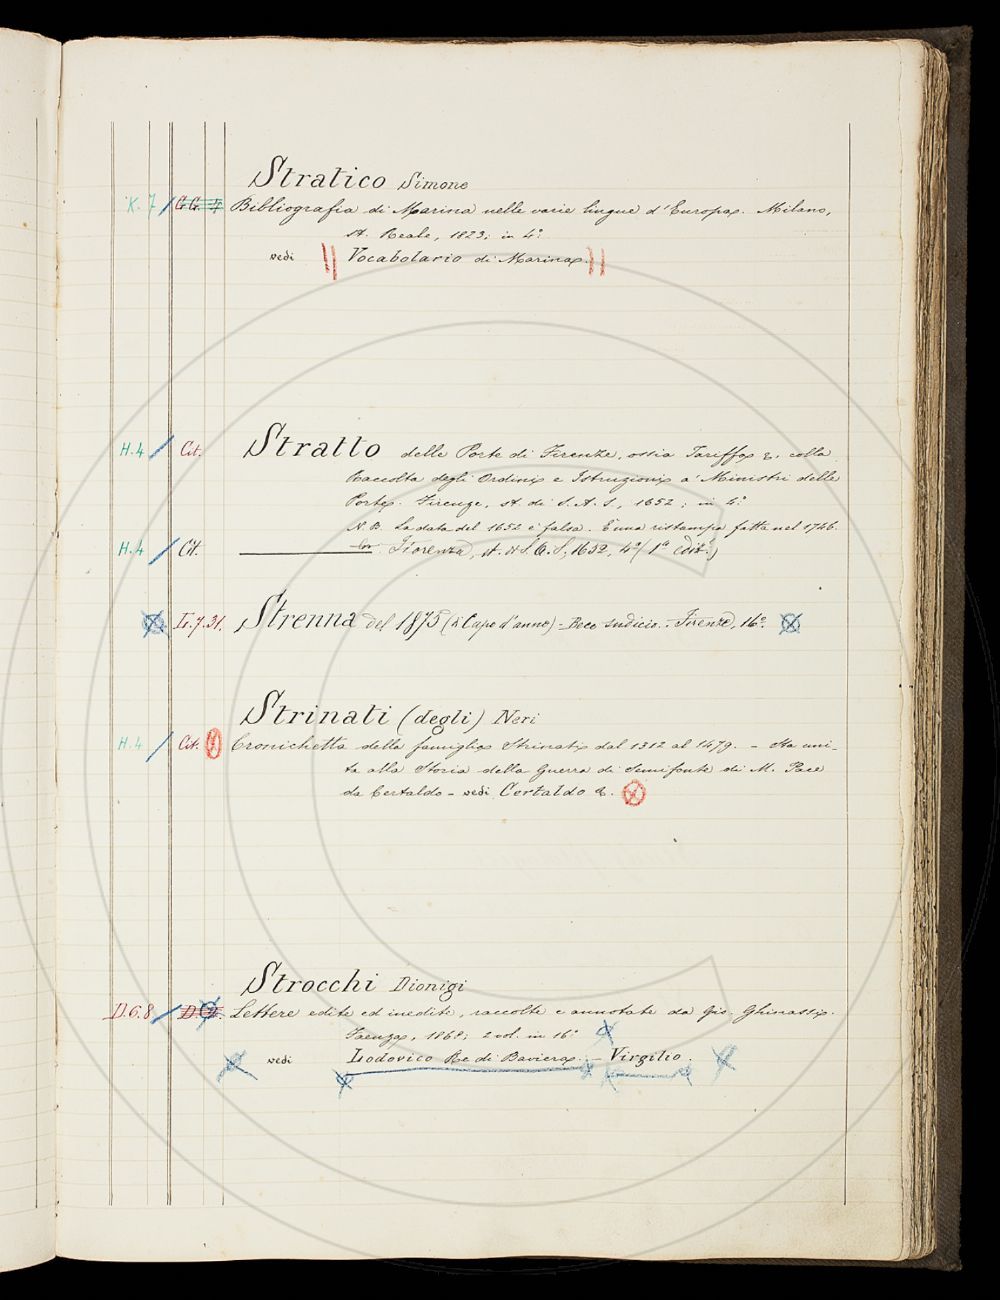 Stratico Simone
K. 7 / G.G. Bibliografia di Marina nelle varie lingue d'Europa. Milano,
st. Reale, 1823; in 4.°
vedi Vocabolario di Marina.
H. 4 / Cit. Stratto delle Porte di Firenze, ossia Tariffa &. colla
Raccolta degli Ordini e Istruzioni a' Ministri delle
Porte. Firenze, st. di S. A. S., 1652; in 4.°
N B. La data del 1652 è falsa. È una ristampa fatta nel 1746.
H. 4 / Cit. Fiorenza, st. di S. A. S, 1652, 4° (1ª ediz.)
Lo. 7. 31. Strenna del 1875 (di Capo d'anno) - Beco sudicio. - Firenze, 16.°
Strinati (degli) Neri
H. 4 / Cit. Cronichetta della famiglia Strinati dal 1312 al 1479. - Sta uni-
ta alla Storia della Guerra di Semifonte di M. Pace
da Certaldo - vedi Certaldo &.
Strocchi Dionigi
D. 6. 8 / Lettere edite ed inedite, raccolte e annotate da Gio. Ghinassi.
Faenza, 1868; 2 vol. in 16.°
vedi Lodovico Re di Baviera. - Virgilio.